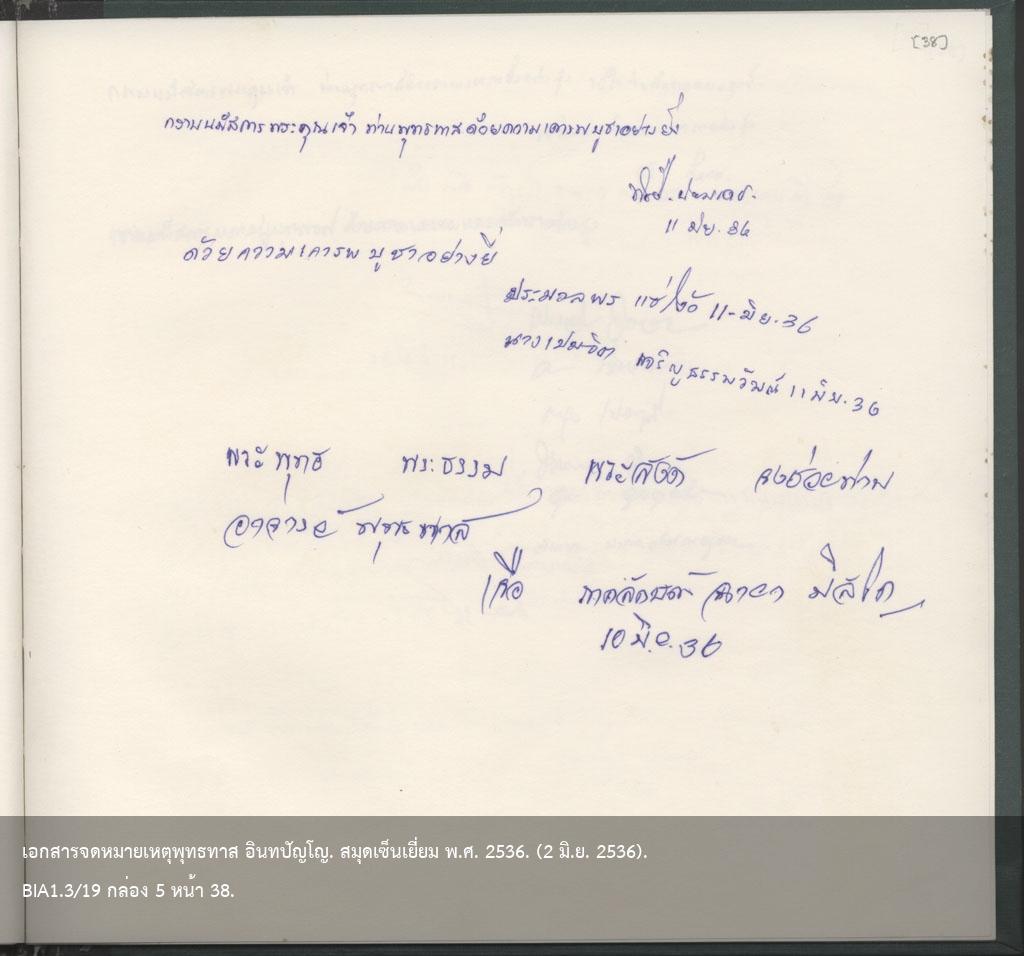 [38]
กราบนมัสการพระคุณเจ้า ท่านพุทธทาสด้วยความเคารพบูชาอย่างยิ่ง
11 มิย. 36
ด้วยความเคารพบูชาอย่างยิ่
ประมวลพร แซ่โง้ว 11-มิย.36
นางเปมจิตา เจริญธรรมวัฒน์ 11 มิย.36
พระพุทธ พระธรรม พระสงฆ์ จงช่วยท่าน
อาจารย์ พุทธทาส
10 มิ.ย.36
เอกสารจดหมายเหตุพุทธทาส อินทปัญโญ. สมุดเซ็นเยี่ยม พ.ศ. 2536. (2 มิ.ย. 2536).
BIA1.3/19 กล่อง 5 หน้า 38.